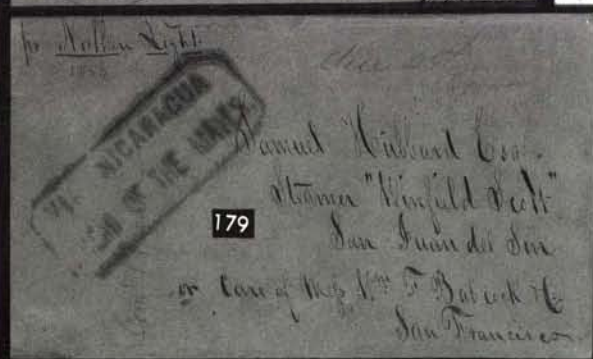 pr Nothen Light
1853
VIA NICARAGUA
OF THE MAILS
Samuel Hubbard Esq.
Steamer "Winfield Scott"
179
San Juan del Sur
or Care of Mess Wm F Babcock & Co
San Francisco